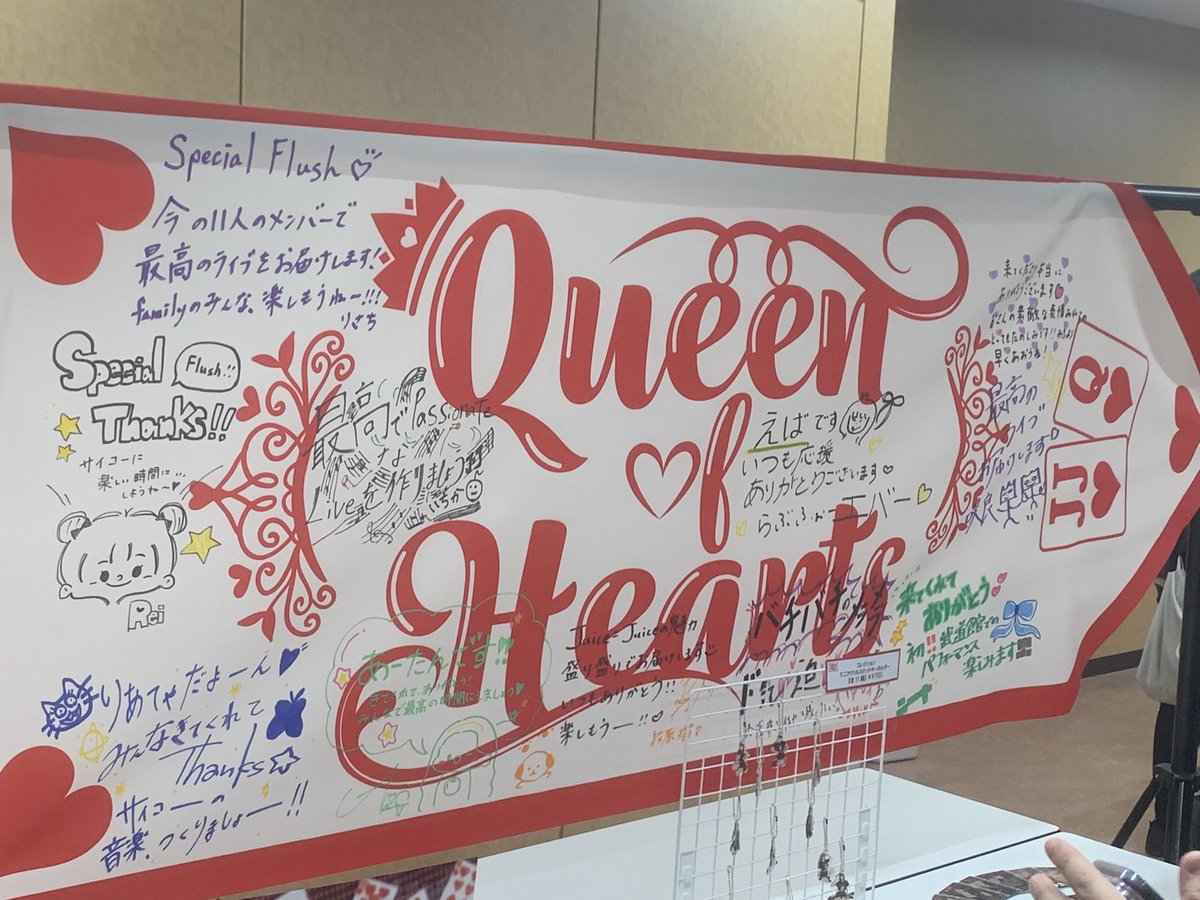 Special Flush♡
今の11人のメンバーで
最高のライブをお届けします!
familyのみんな、楽しもうねー!!!
りさち
Queen
of
Hearts
Special
Flush!!
Thanks!!
サイコーに
楽しい時間に…
しようね〜♡
Rei
最高で
Passionate
な
Liveを作りましょう
いちか
えばです
いつも応援
ありがとうございます♡
らぶふぉーエバー♡
来てくれて本当に
ありがとうございます
皆さんの素敵な表情みんな
とってもたのしみです!!
早くあおうね!
最高の
ライブ
お届けします
Q
JJ
ありあてゃだよーん♥
みんなきてくれて
Thanks☆
サイコーの
音楽、つくりましょー!!
あーたんです!!
きてくれて、ありがとう!
みんなで最高の時間にしましょう♥
Juice=Juiceの魅力
盛り盛りでお届けします
いつもありがとう!!
楽しもうー!!♡
バチバチの
来てくれて
ありがとう♡
初武道館での
パフォーマンス
楽しみます
コレクション
ミニアクリルスタンドキーホルダー
[全11種] ¥700